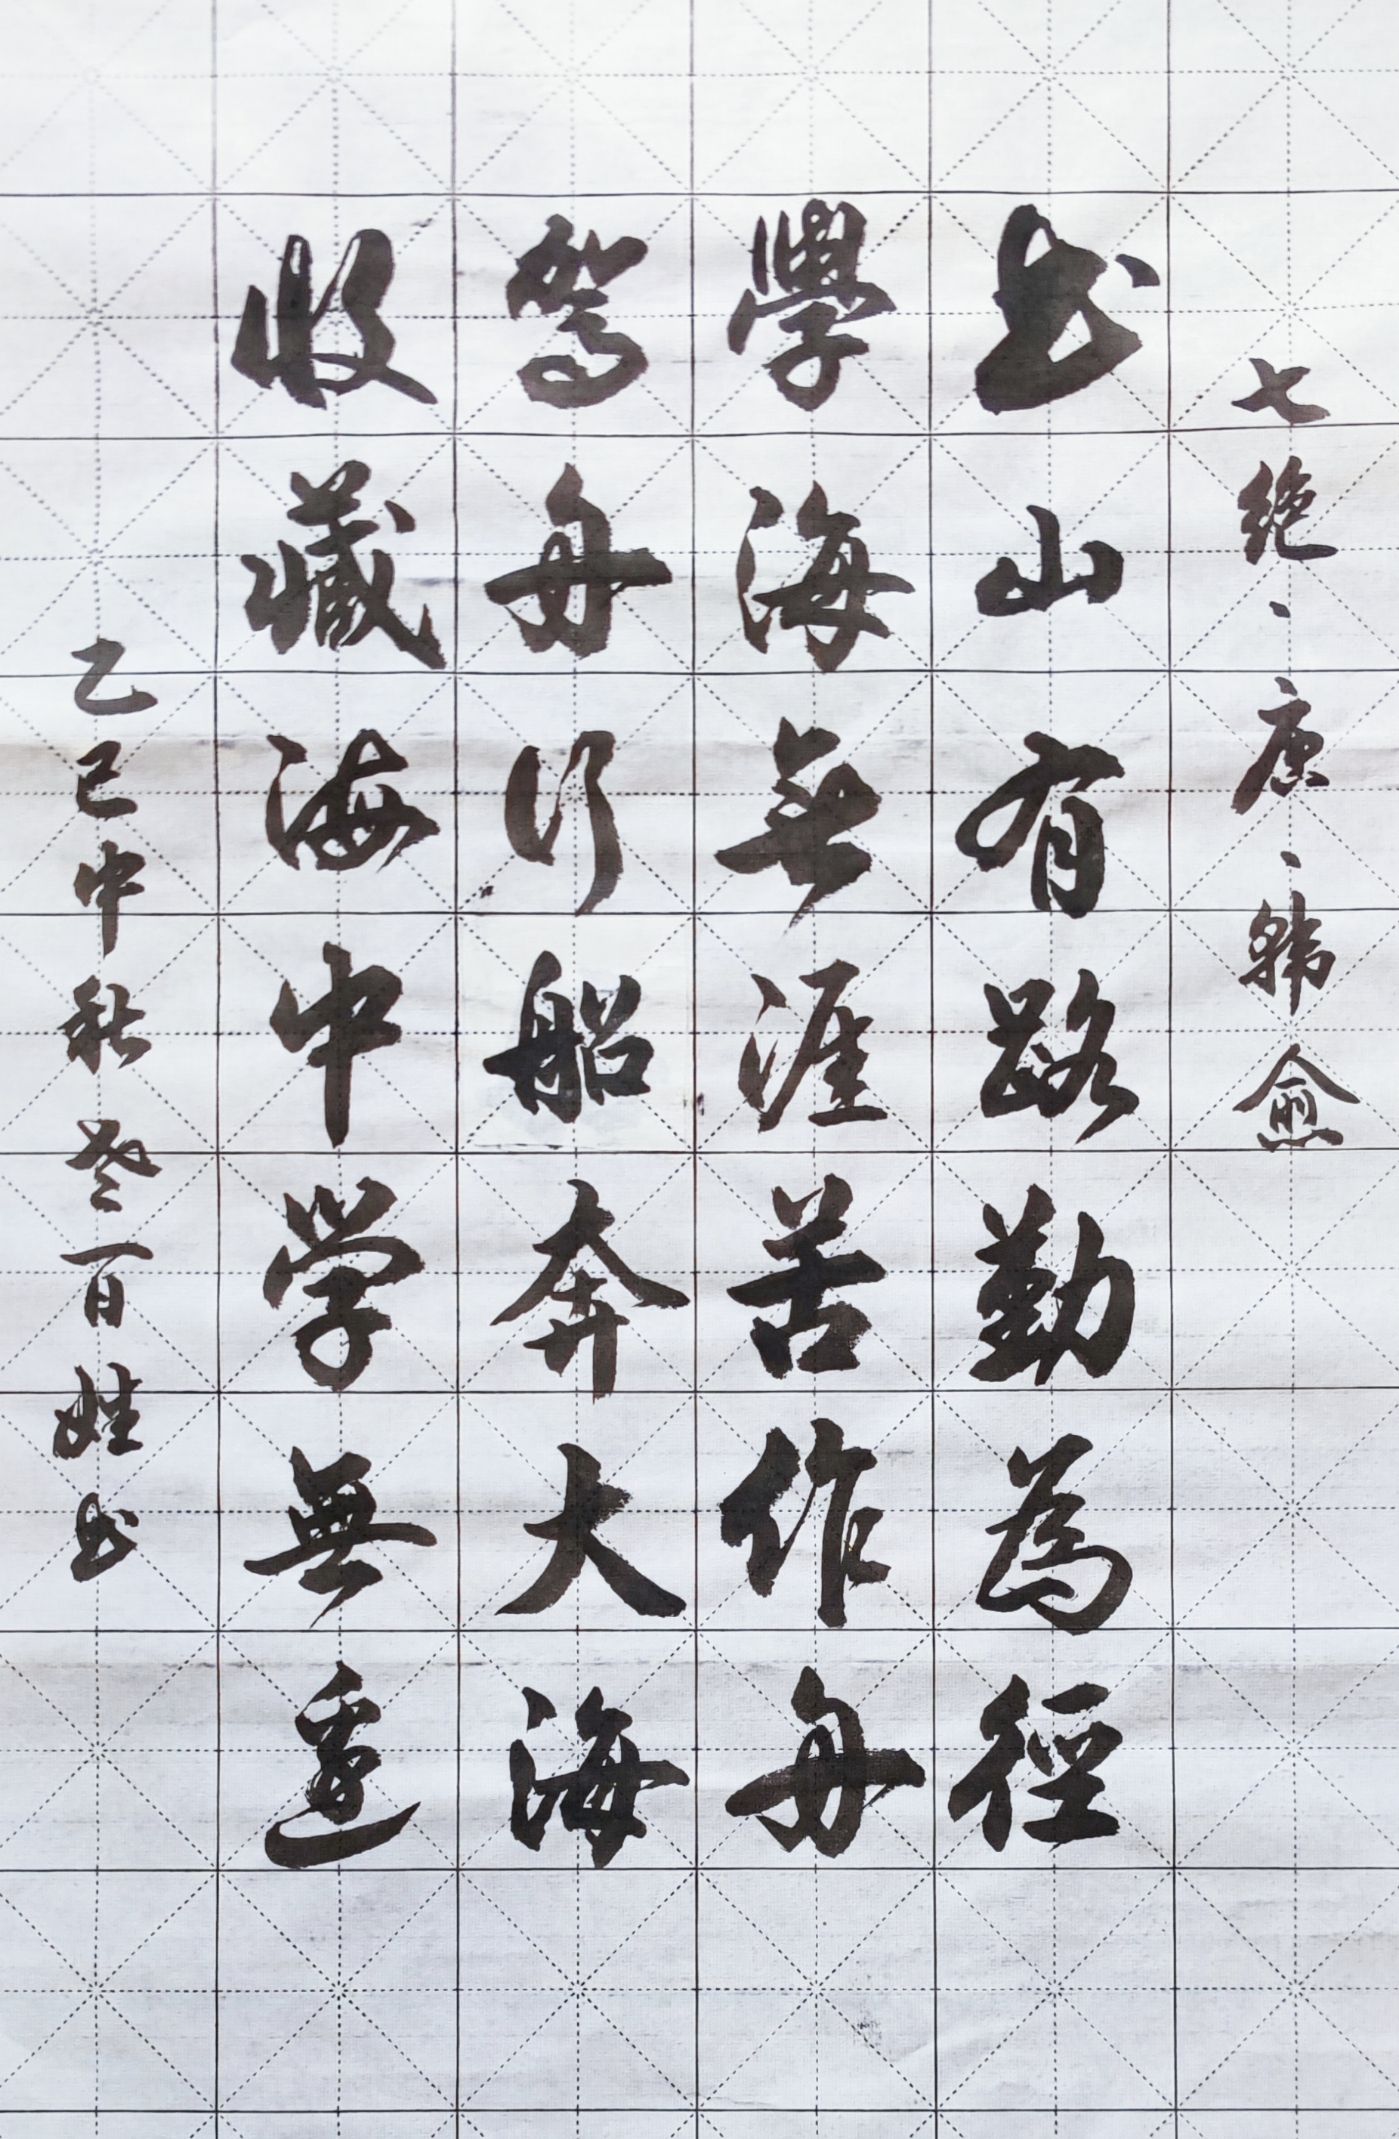 七绝、唐、韓愈
书山有路勤為徑
學海無涯苦作舟
驾舟行船奔大海
收藏海中学無邊
乙巳中秋百姓书